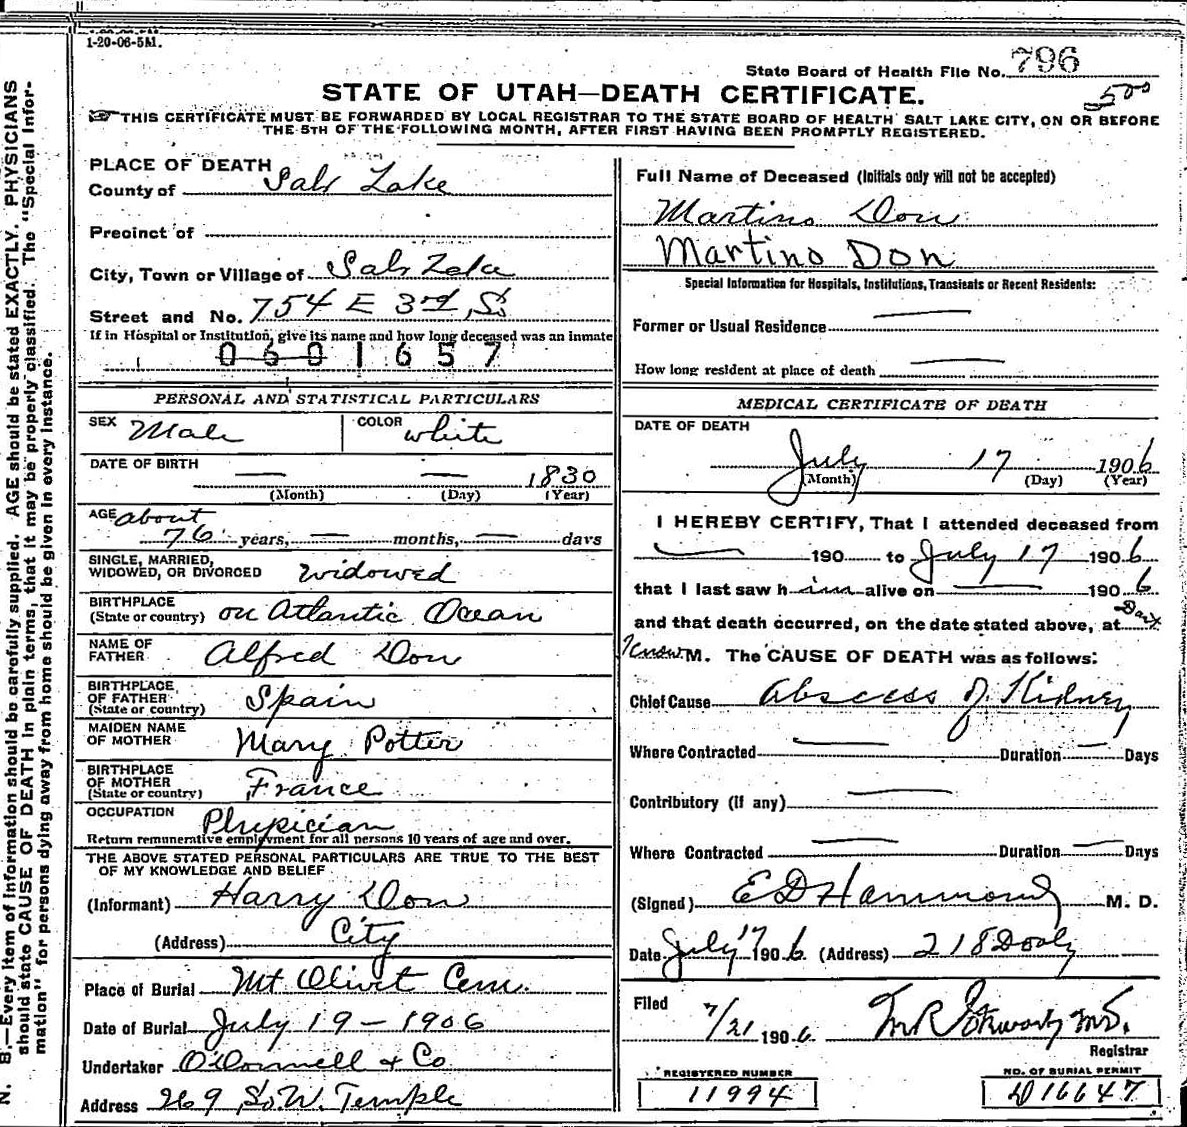 1-20-06-5M.
State Board of Health File No. 796
500
STATE OF UTAH—DEATH CERTIFICATE.
☞ THIS CERTIFICATE MUST BE FORWARDED BY LOCAL REGISTRAR TO THE STATE BOARD OF HEALTH SALT LAKE CITY, ON OR BEFORE
THE 5TH OF THE FOLLOWING MONTH, AFTER FIRST HAVING BEEN PROMPTLY REGISTERED.
PLACE OF DEATH
County of Salt Lake
Precinct of
City, Town or Village of Salt Lake
Street and No. 754 E 3rd So
If in Hospital or Institution, give its name and how long deceased was an inmate
0601657
PERSONAL AND STATISTICAL PARTICULARS
SEX Male COLOR white
DATE OF BIRTH — — 1830
(Month) (Day) (Year)
AGE about
76 years, — months, — days
SINGLE, MARRIED,
WIDOWED, OR DIVORCED widowed
BIRTHPLACE
(State or country) on Atlantic Ocean
NAME OF
FATHER Alfred Don
BIRTHPLACE
OF FATHER
(State or country) Spain
MAIDEN NAME
OF MOTHER Mary Potter
BIRTHPLACE
OF MOTHER
(State or country) France
OCCUPATION Physician
Return remunerative employment for all persons 10 years of age and over.
THE ABOVE STATED PERSONAL PARTICULARS ARE TRUE TO THE BEST
OF MY KNOWLEDGE AND BELIEF
(Informant) Harry Don
(Address) City
Place of Burial Mt Olivet Cem.
Date of Burial July 19 - 1906
Undertaker O'Donnell & Co
Address 269 So. W. Temple
Full Name of Deceased (Initials only will not be accepted)
Martino Don
Martino Don
Special Information for Hospitals, Institutions, Transients or Recent Residents:
Former or Usual Residence —
How long resident at place of death —
MEDICAL CERTIFICATE OF DEATH
DATE OF DEATH
July 17 1906
(Month) (Day) (Year)
I HEREBY CERTIFY, That I attended deceased from
— 190 to July 17 1906
that I last saw him alive on — 1906
and that death occurred, on the date stated above, at Don't
Know M. The CAUSE OF DEATH was as follows:
Chief Cause Abscess of Kidney
Where Contracted — Duration — Days
Contributory (If any) —
Where Contracted — Duration — Days
(Signed) E D Hammond M. D.
Date July 17 1906 (Address) 218 Dooly
Filed 7/21 1906
Registrar
REGISTERED NUMBER
11994
NO. OF BURIAL PERMIT
D16647
N. B.—Every item of information should be carefully supplied. AGE should be stated EXACTLY. PHYSICIANS
should state CAUSE OF DEATH in plain terms, that it may be properly classified. The "Special Infor-
mation" for persons dying away from home should be given in every instance.